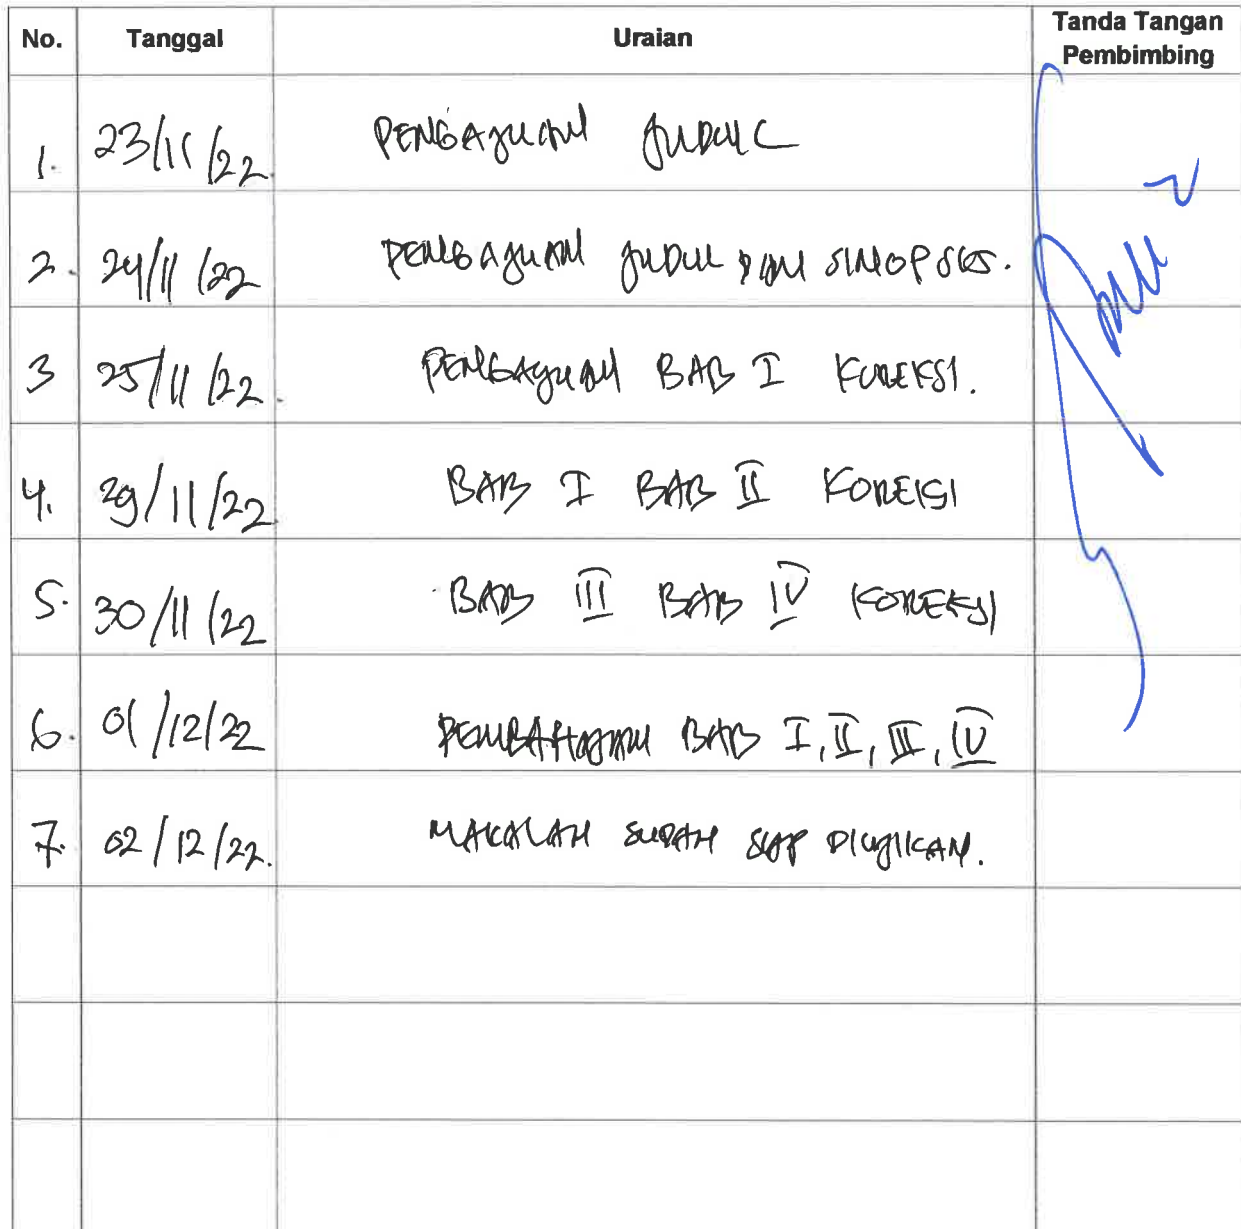 No. Tanggal Uraian Tanda Tangan Pembimbing
1. 23/11/22. PENGAJUAN JUDUL
2. 24/11/22 PENGAJUAN JUDUL DAN SINOPSIS.
3 25/11/22. PENGAJUAN BAB I KOREKSI.
4. 29/11/22 BAB I BAB II KOREKSI
5. 30/11/22 BAB III BAB IV KOREKSI
6. 01/12/22 PEMBAHASAN BAB I, II, III, IV
7. 02/12/22. MAKALAH SUDAH SIAP DIUJIKAN.